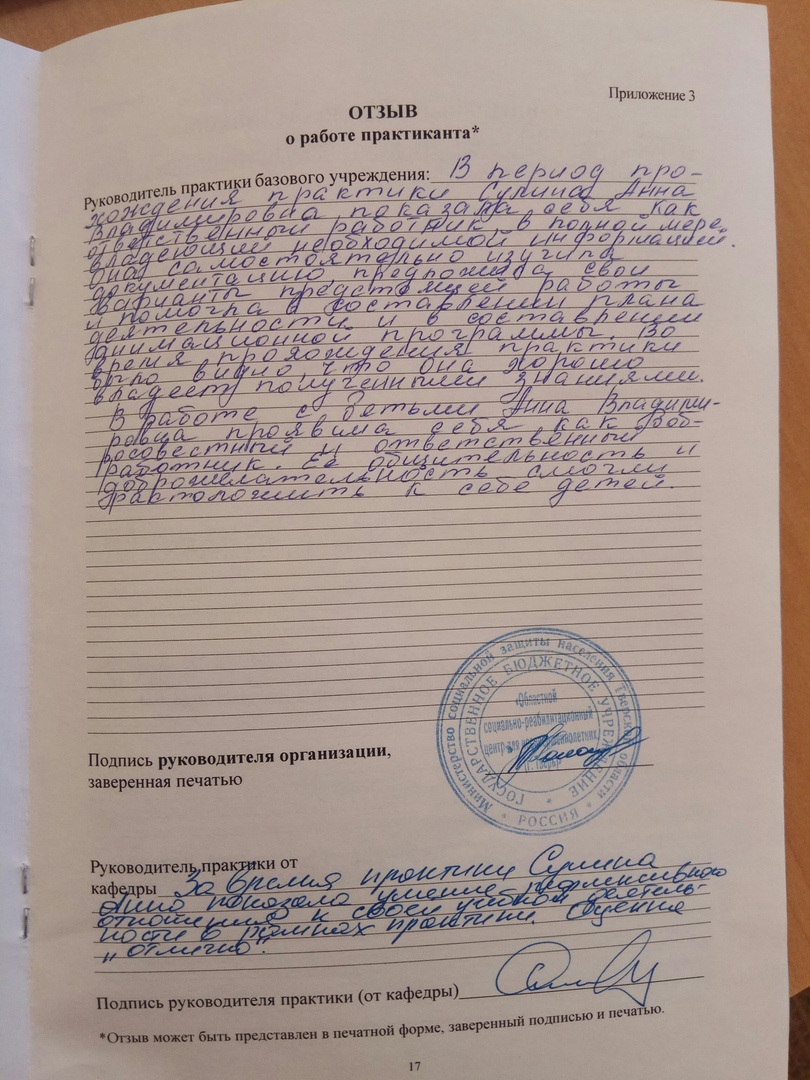 Приложение 3
ОТЗЫВ
о работе практиканта*
Руководитель практики базового учреждения: В период про-
хождения практики Сулина Анна
Владимировна показала себя как
ответственный работник, в полной мере
владеющий необходимой информацией.
Она самостоятельно изучила
документацию, предложила свои
варианты предстоящей работы
и помогла в составлении плана
деятельности и в составлении
анимационной программы. Во
время прохождения практики
было видно, что она хорошо
владеет полученными знаниями.
В работе с детьми Анна Владими-
ровна проявила себя как доб-
росовестный и ответственный
работник. Её общительность и
доброжелательность смогли
расположить к себе детей.
Министерство социальной защиты населения Тверской области
* РОССИЯ *
ГОСУДАРСТВЕННОЕ БЮДЖЕТНОЕ УЧРЕЖДЕНИЕ *
«Областной
социально-реабилитационный
центр для несовершеннолетних»
(г. Тверь)
Подпись руководителя организации,
заверенная печатью
Руководитель практики от
кафедры За время практики Сулина
Анна показала умение рефлексивного
отношения к своей учебной деятель-
ности в рамках практики. Оценка
„отлично".
Подпись руководителя практики (от кафедры)
*Отзыв может быть представлен в печатной форме, заверенный подписью и печатью.
17